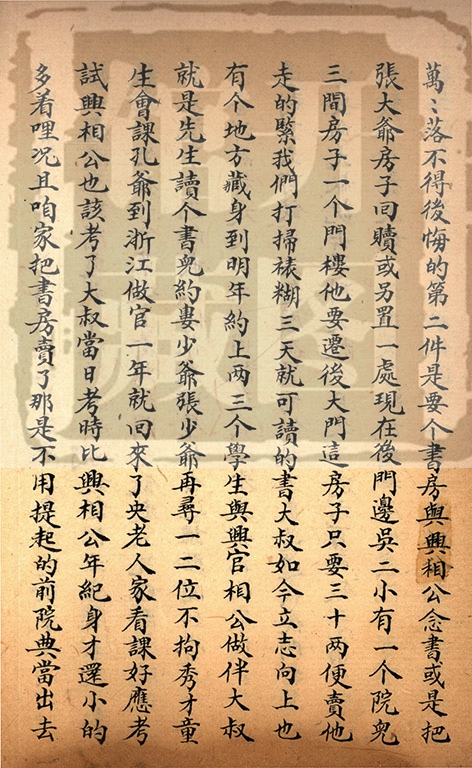 萬〻落不得後悔的第二件是要个書房與興相公念書或是把
張大爺房子囬贖或另置一處現在後門邊吳二小有一个院兒
三間房子一个門樓他要遷後大門這房子只要三十两便賣他
走的緊我們打掃裱糊三天就可讀的書大叔如今立志向上也
有个地方藏身到明年約上两三个學生與興官相公做伴大叔
就是先生讀个書兒約婁少爺張少爺再尋一二位不拘秀才童
生會課孔爺到浙江做官一年就回來了央老人家看課好應考
試興相公也該考了大叔當日考時比興相公年紀身才還小的
多着哩况且咱家把書房賣了那是不用提起的前院典當出去